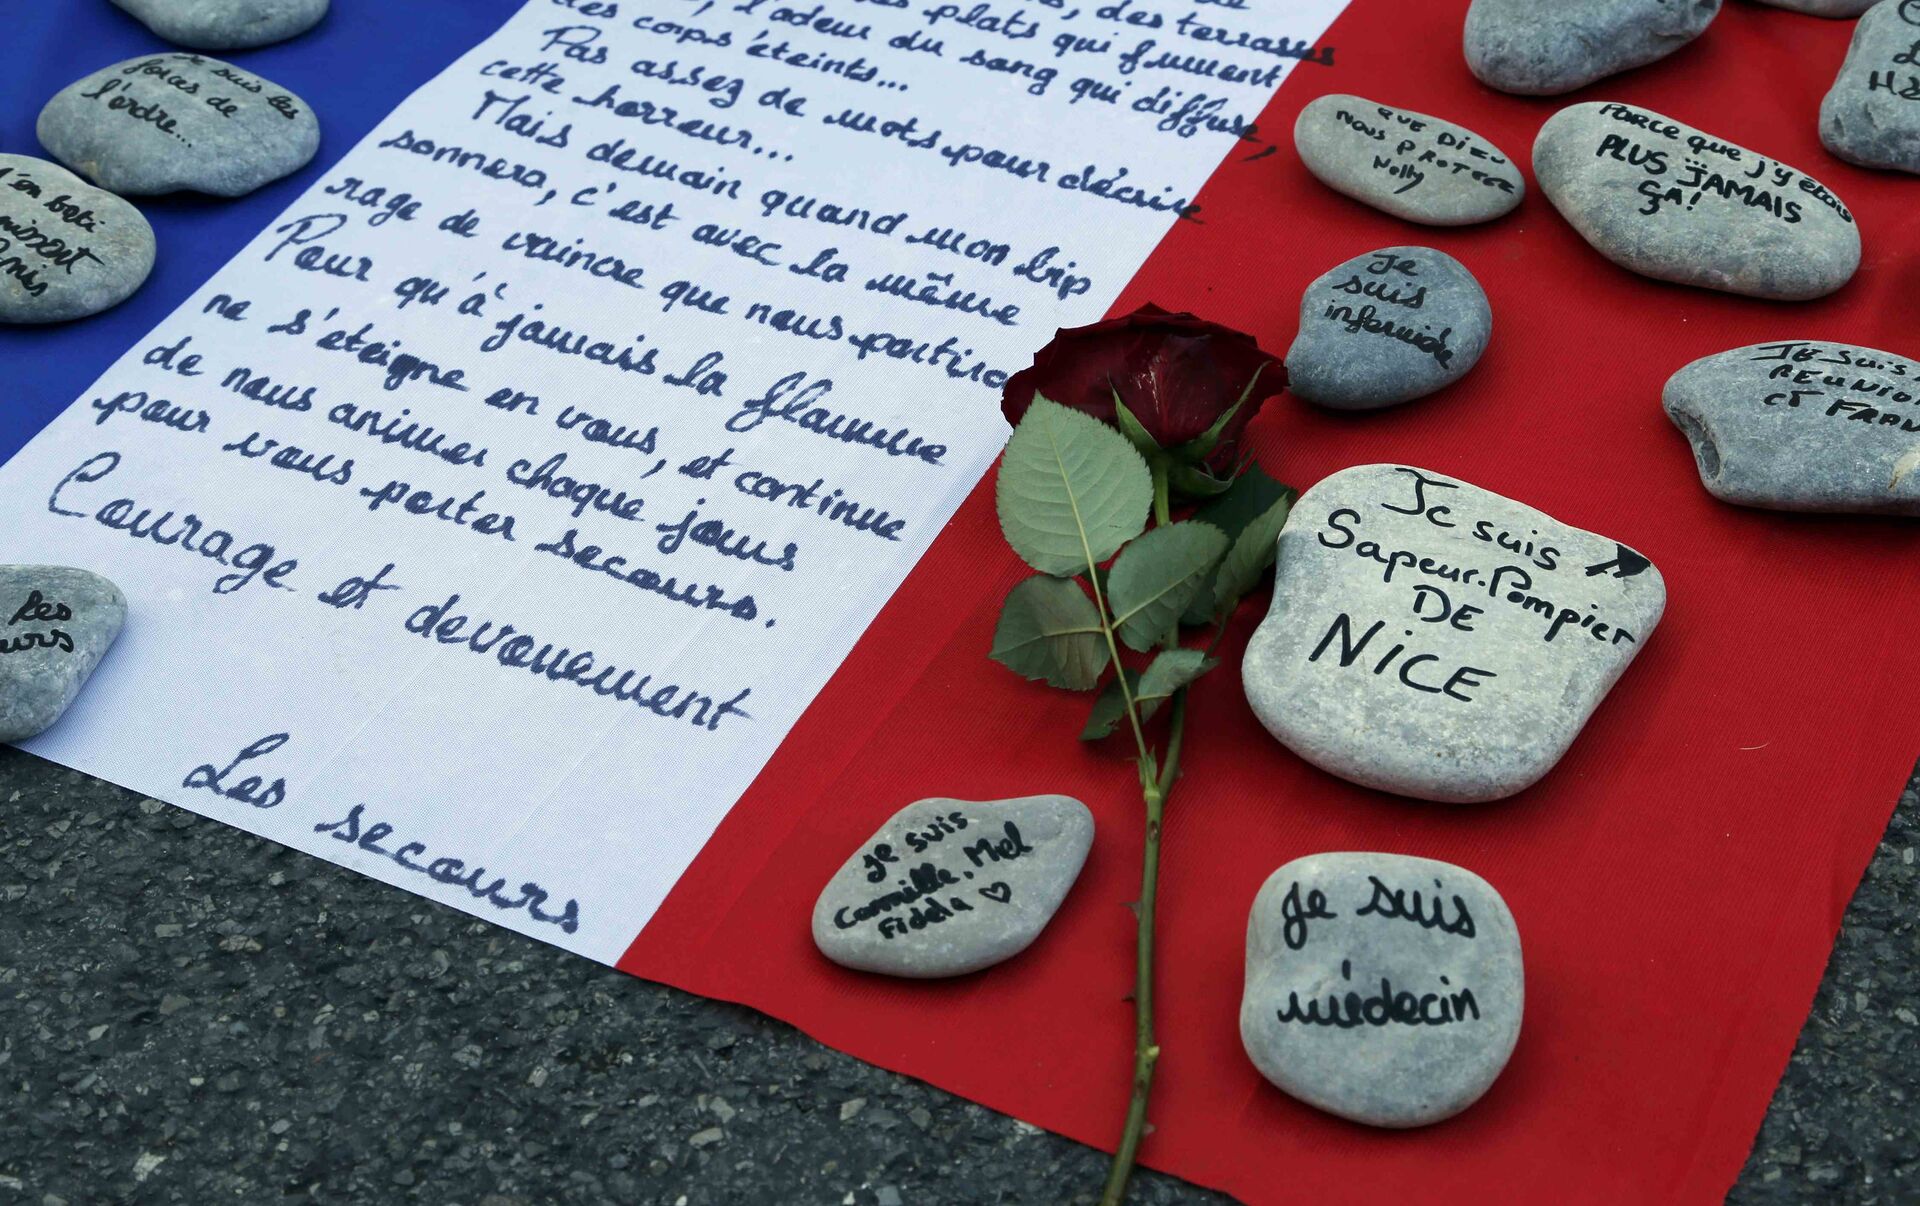 des terrasses
plats qui fument
l'odeur du sang qui diffuse,
des corps éteints...
Pas assez de mots pour décrire
cette horreur...
Mais demain quand mon bip
sonnera, c'est avec la même
rage de vaincre que nous partiro
Pour qu'à jamais la flamme
ne s'éteigne en vous, et continue
de nous animer chaque jours
pour vous porter secours.
Courage et dévouement
Les secours
Je suis les
forces de
l'ordre...
les
QUE DIEU
NOUS PROTEGE
Nelly
PARCE QUE J'Y ETAIS
PLUS JAMAIS
ÇA!
Je
suis
infirmière
JE SUIS
REUNION
ET FRAN
Je suis
Sapeur-Pompier
DE
NICE
Je suis
Camille, Mel
Fidela ♡
Je suis
médecin